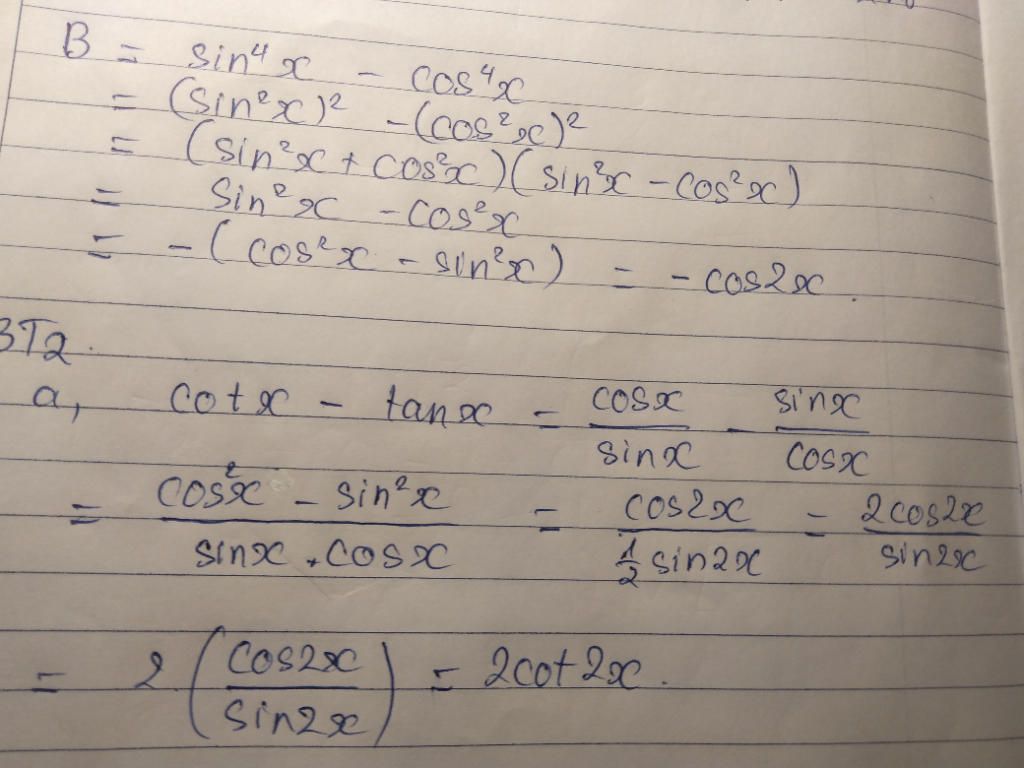 B = sin⁴x - cos⁴x
= (sin²x)² - (cos²x)²
= (sin²x + cos²x)(sin²x - cos²x)
= sin²x - cos²x
= - (cos²x - sin²x) = - cos2x.
BT2.
a, cotx - tanx = cosx/sinx - sinx/cosx
= (cos²x - sin²x)/(sinx . cosx) = cos2x/(1/2 sin2x) = 2cos2x/sin2x
= 2 (cos2x/sin2x) = 2cot2x.